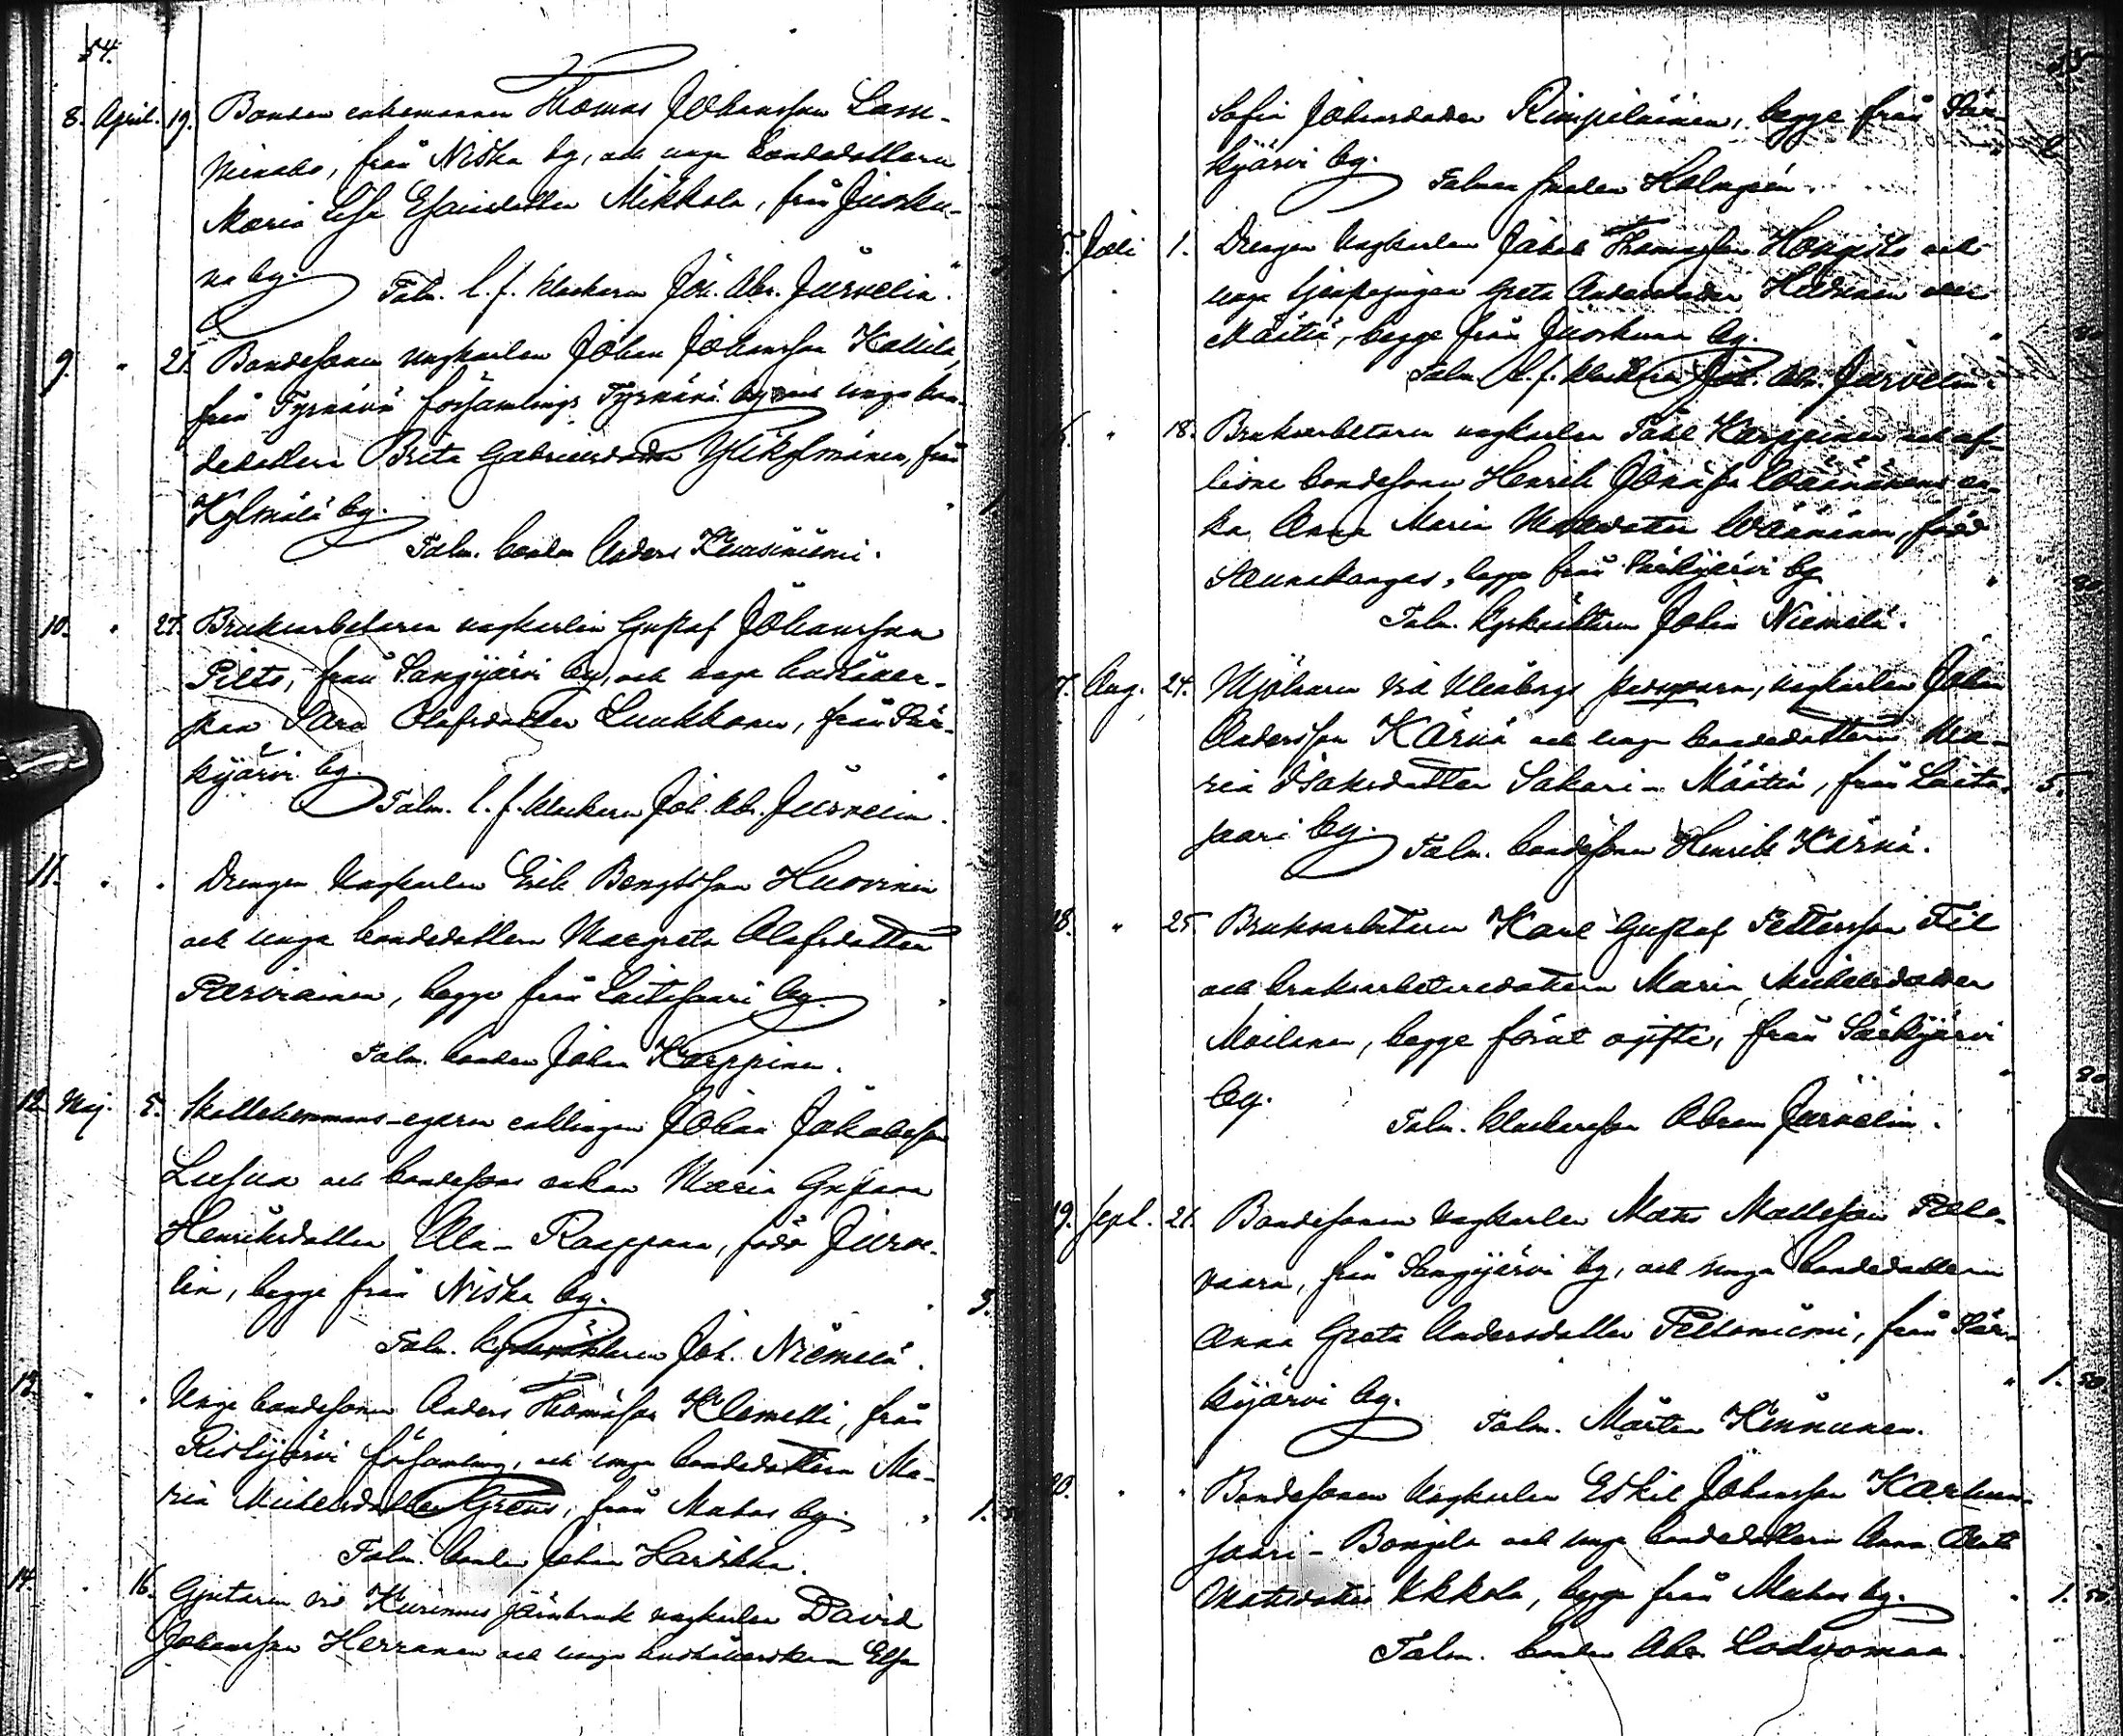 54.
8. April. 19. Bonden enkemannen Thomas Johansson Lam-
minaho, från Niska by, och unga bondedottern
Maria Lisa Esaiedotter Mikkola, från Juorku-
na by.
Talm. t. f. klockaren Joh. Abr. Järvelin.
9. " 21. Bondesonen ungkarlen Johan Johansson Kallila,
från Tyrnävä församlings Tyrnävä by och unga bon-
dedottern Brita Gabrielsdotter Ylikylmänen, från
Kylmälä by.
Talm. bonden Anders Keräsniemi.
10. " 27. Bruksarbetaren ungkarlen Gustaf Johansson
Pilto, från Sangijärvi by, och unga hushåller-
skan Sara Olofsdotter Luukkonen, från Sär-
kijärvi by.
Talm. t. f. klockaren Joh. Abr. Järvelin.
11. " " Drengen ungkarlen Erik Bengtsson Huovinen
och unga bondedottern Margreta Olofsdotter
Parviainen, begge från Laitasaari by.
Talm. bonden Johan Karppinen.
12. Maj. 5. Skattehemmans-egaren enklingen Johan Jakobsson
Lusua och bondesons enkan Maria Gustava
Henriksdotter Ala-Raappana, född Järve-
lin, begge från Niska by. " 3.
Talm. kyrkväktaren Joh. Niemelä.
13. " " Unge bondesonen Anders Thomasson Klemetti, från
Ristijärvi församling, och unga bondedottern Ma-
ria Michelsdotter Grens, från Muhos by. " 1.
Talm. bonden Johan Harikka.
14. " 16. Gjutaren vid Kurimus järnbruk ungkarlen David
Johansson Herranen och unga hushållerskan Elsa
55
Sofia Johansdotter Rimpiläinen, begge från Sär-
kijärvi by.
Talman Holmgrén.
15. Juli 1. Drengen ungkarlen Jakob Thomasson Hongisto och
unga tjenstepigan Greta Andersdotter Heikkinen eller
Määttä, begge från Juorkuna by.
Talm. t. f. klockaren Joh. Abr. Järvelin.
16. " 18. Bruksarbetaren ungkarlen Påhl Karppinen och af-
lidne bondesonen Henrik Jonasson Väänänens en-
ka Anna Maria Matsdotter Väänänen, född
Saunakangas, begge från Särkijärvi by. " 80
Talm. kyrkväktaren Johan Niemelä.
17. Aug. 24. Mjölnaren vid Uleåborgs, ungkarlen Johan
Andersson Kärnä och unga bondedottern Ma-
ria Isaksdotter Sakari-Määttä, från Laita- 5.
saari by.
Talm. bondesonen Henrik Kärnä.
18. " 25 Bruksarbetaren Karl Gustaf Pettersson Fil
och bruksarbetaredottern Maria Michelsdotter
Moilanen, begge förut ogifte, från Särkijärvi
by. " 80
Talm. klockaresson Abram Järvelin.
19. Sept. 21. Bondesonen ungkarlen Mats Matsson Palo-
vaara, från Sangijärvi by, och unga bondedottern
Anna Greta Andersdotter Peltoniemi, från Sär-
kijärvi by. " 1. 50
Talm. Mårten Kinnunen.
20. " " Bondesonen ungkarlen Eskil Johansson Karhun-
saari-Bonjela och unga bondedottern Anna Beata
Matsdotter Ukkola, begge från Muhos by. " 1. 50
Talm. bonden Abr. Lodvomaa.